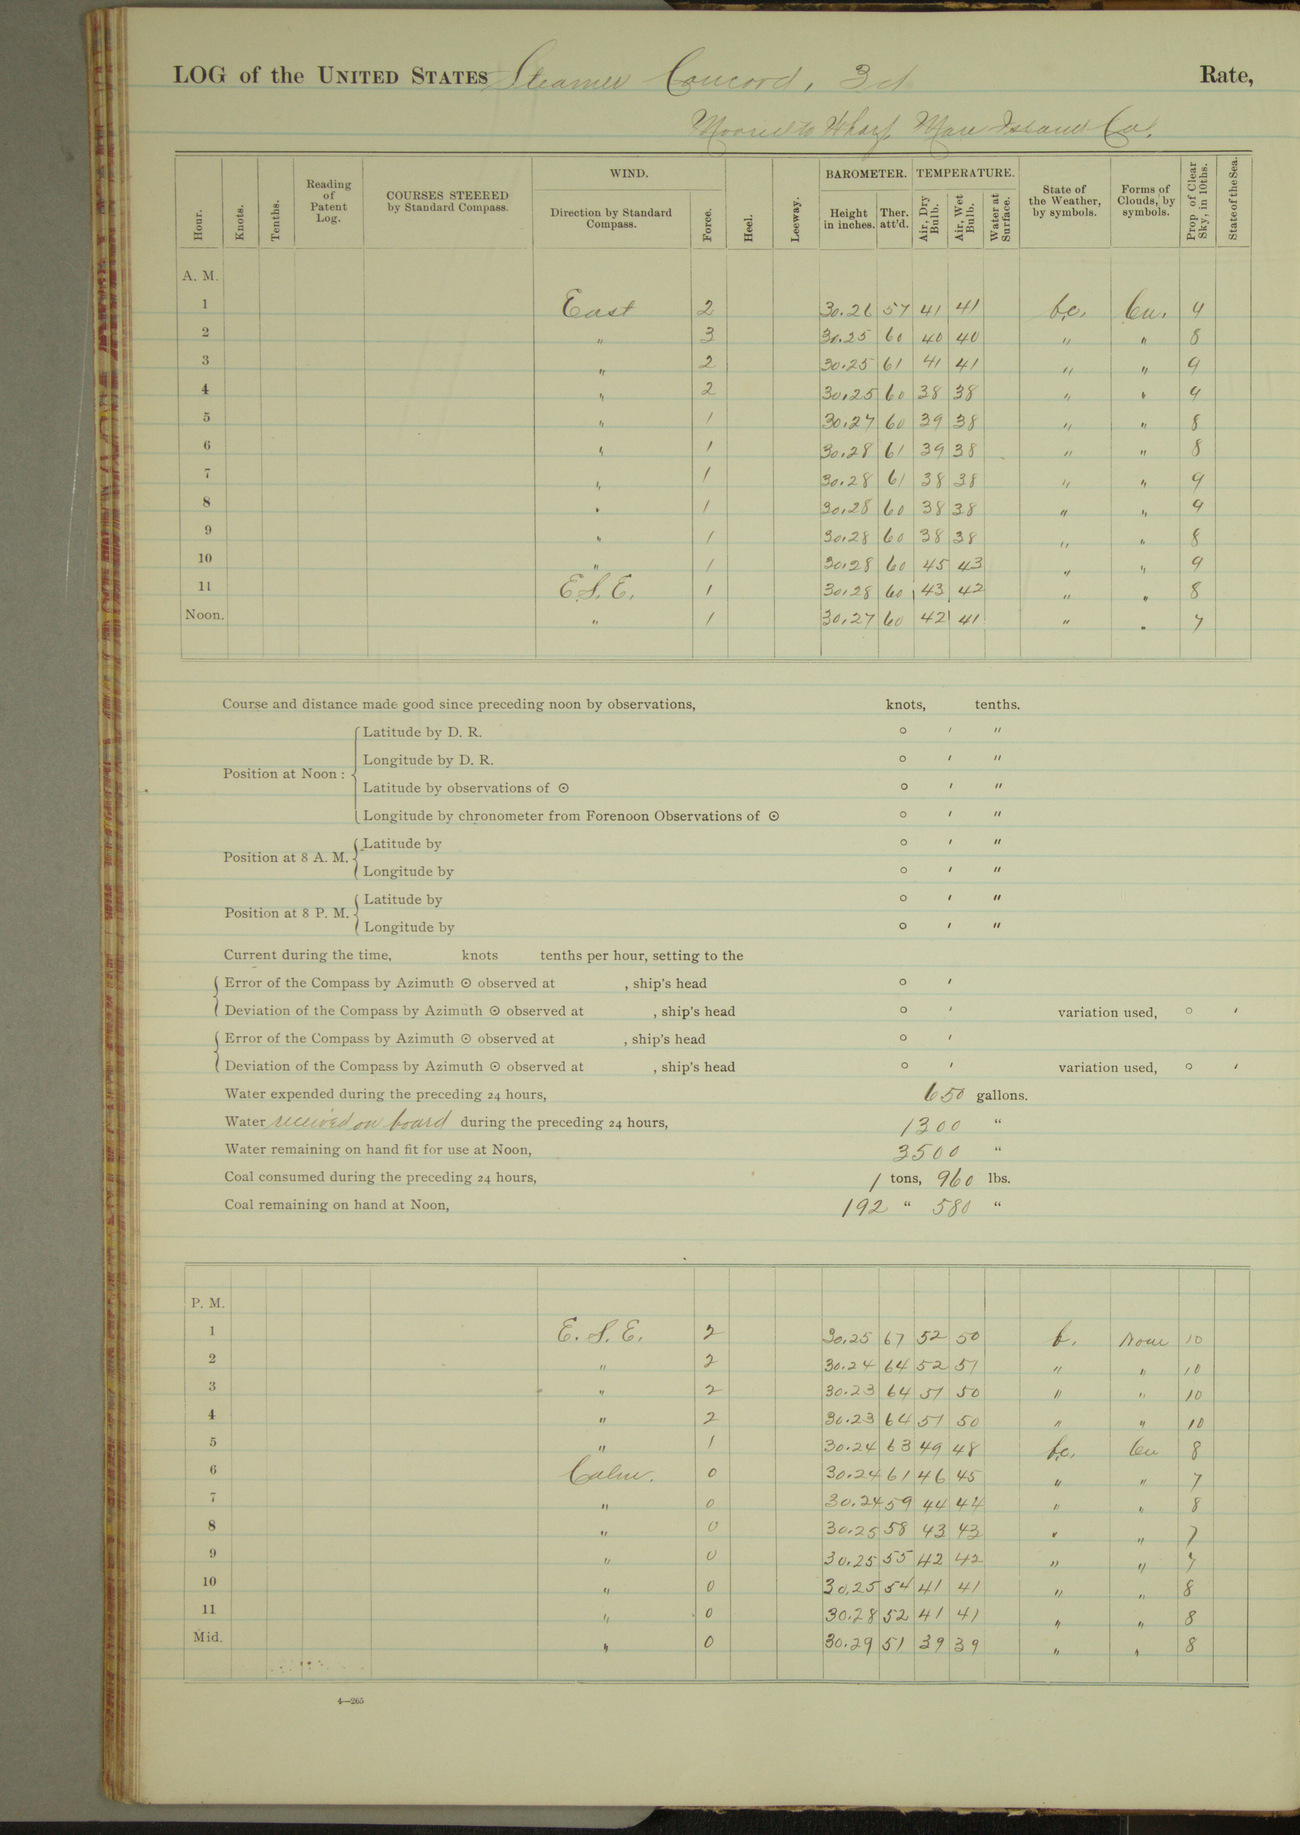 LOG of the UNITED STATES Steamer Concord, 3d Rate,
Moored to Wharf, Mare Island Cal.
Hour. Knots. Tenths. Reading of Patent Log. COURSES STEERED by Standard Compass. WIND. Direction by Standard Compass. Force. Heel. Leeway. BAROMETER. Height in inches. Ther. att'd. TEMPERATURE. Air, Dry Bulb. Air, Wet Bulb. Water at Surface. State of the Weather, by symbols. Forms of Clouds, by symbols. Prop. of Clear Sky, in 10ths. State of the Sea.
A. M.
1 East 2 30.26 57 41 41 b.c. Cu. 9
2 " 3 30.25 60 40 40 " " 8
3 " 2 30.25 61 41 41 " " 9
4 " 2 30.25 60 38 38 " " 9
5 " 1 30.27 60 39 38 " " 8
6 " 1 30.28 61 39 38 " " 8
7 " 1 30.28 61 38 38 " " 9
8 " 1 30.28 60 38 38 " " 9
9 " 1 30.28 60 38 38 " " 8
10 " 1 30.28 60 45 43 " " 9
11 E.S.E. 1 30.28 60 43 42 " " 8
Noon. " 1 30.27 60 42 41 " " 7
Course and distance made good since preceding noon by observations, knots, tenths.
Position at Noon:
Latitude by D. R. ° ′ ″
Longitude by D. R. ° ′ ″
Latitude by observations of ☉ ° ′ ″
Longitude by chronometer from Forenoon Observations of ☉ ° ′ ″
Position at 8 A. M.
Latitude by ° ′ ″
Longitude by ° ′ ″
Position at 8 P. M.
Latitude by ° ′ ″
Longitude by ° ′ ″
Current during the time, knots tenths per hour, setting to the
Error of the Compass by Azimuth ☉ observed at , ship's head ° ′
Deviation of the Compass by Azimuth ☉ observed at , ship's head ° ′ variation used, ° ′
Error of the Compass by Azimuth ☉ observed at , ship's head ° ′
Deviation of the Compass by Azimuth ☉ observed at , ship's head ° ′ variation used, ° ′
Water expended during the preceding 24 hours, 650 gallons.
Water received on board during the preceding 24 hours, 1300 "
Water remaining on hand fit for use at Noon, 3500 "
Coal consumed during the preceding 24 hours, 1 tons, 960 lbs.
Coal remaining on hand at Noon, 192 " 580 "
P. M.
1 E. S. E. 2 30.25 67 52 50 b. None 10
2 " 2 30.24 64 52 51 " " 10
3 " 2 30.23 64 51 50 " " 10
4 " 2 30.23 64 51 50 " " 10
5 " 1 30.24 63 49 48 b.c. Cu 8
6 Calm. 0 30.24 61 46 45 " " 7
7 " 0 30.24 59 44 44 " " 8
8 " 0 30.25 58 43 43 " " 7
9 " 0 30.25 55 42 42 " " 7
10 " 0 30.25 54 41 41 " " 8
11 " 0 30.28 52 41 41 " " 8
Mid. " 0 30.29 51 39 39 " " 8
4—265